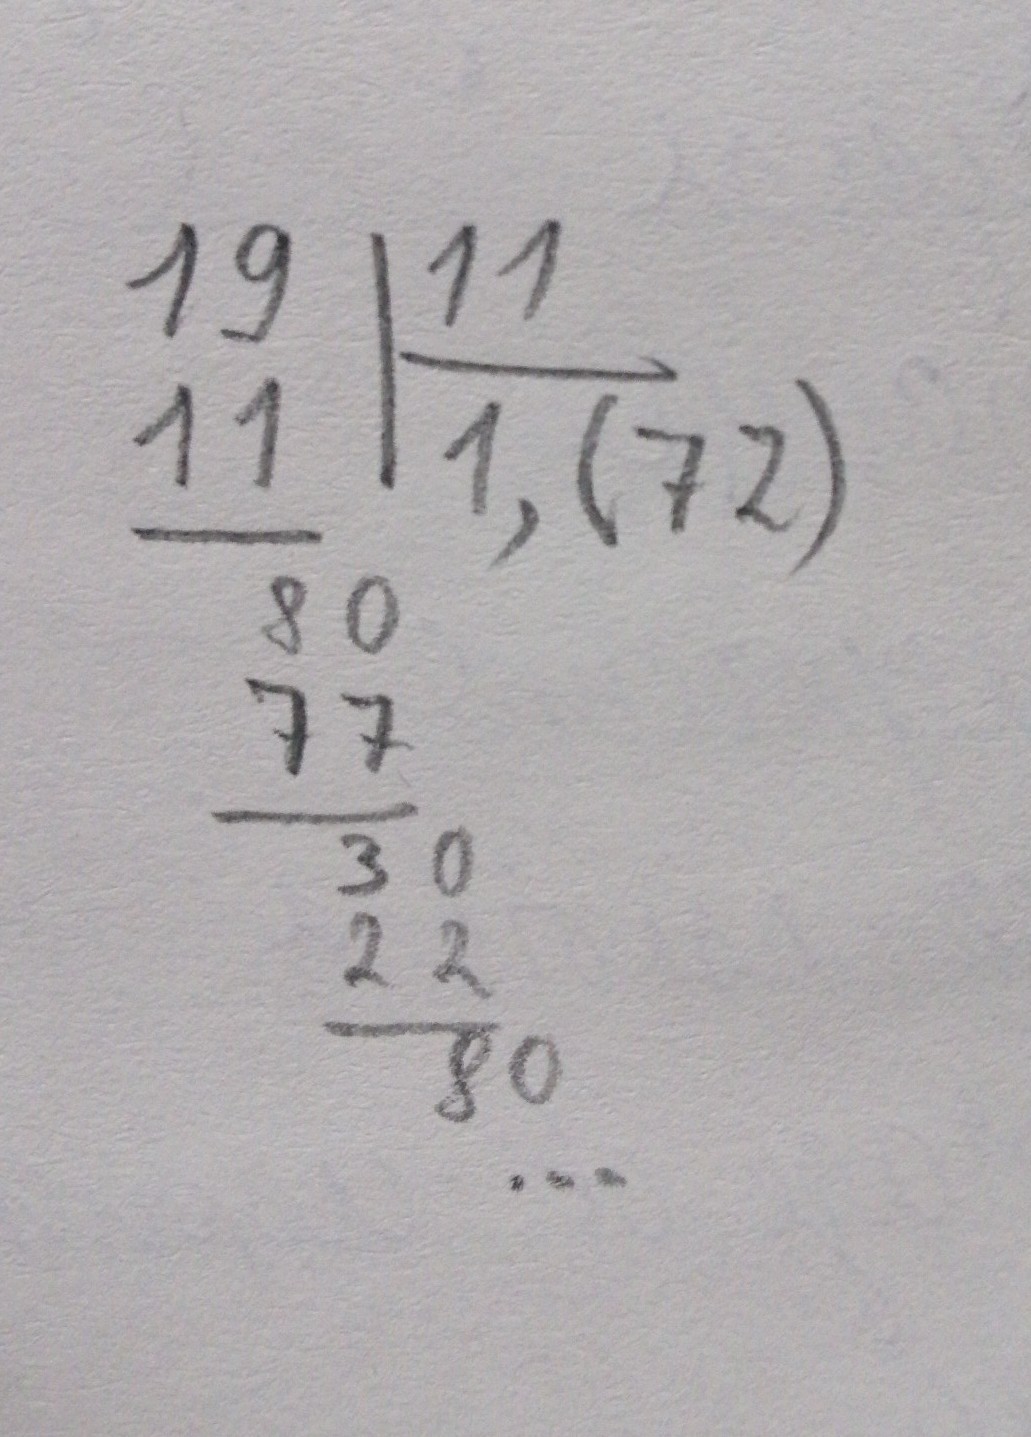 19 | 11
11 1,(72)
80
77
30
22
80
...